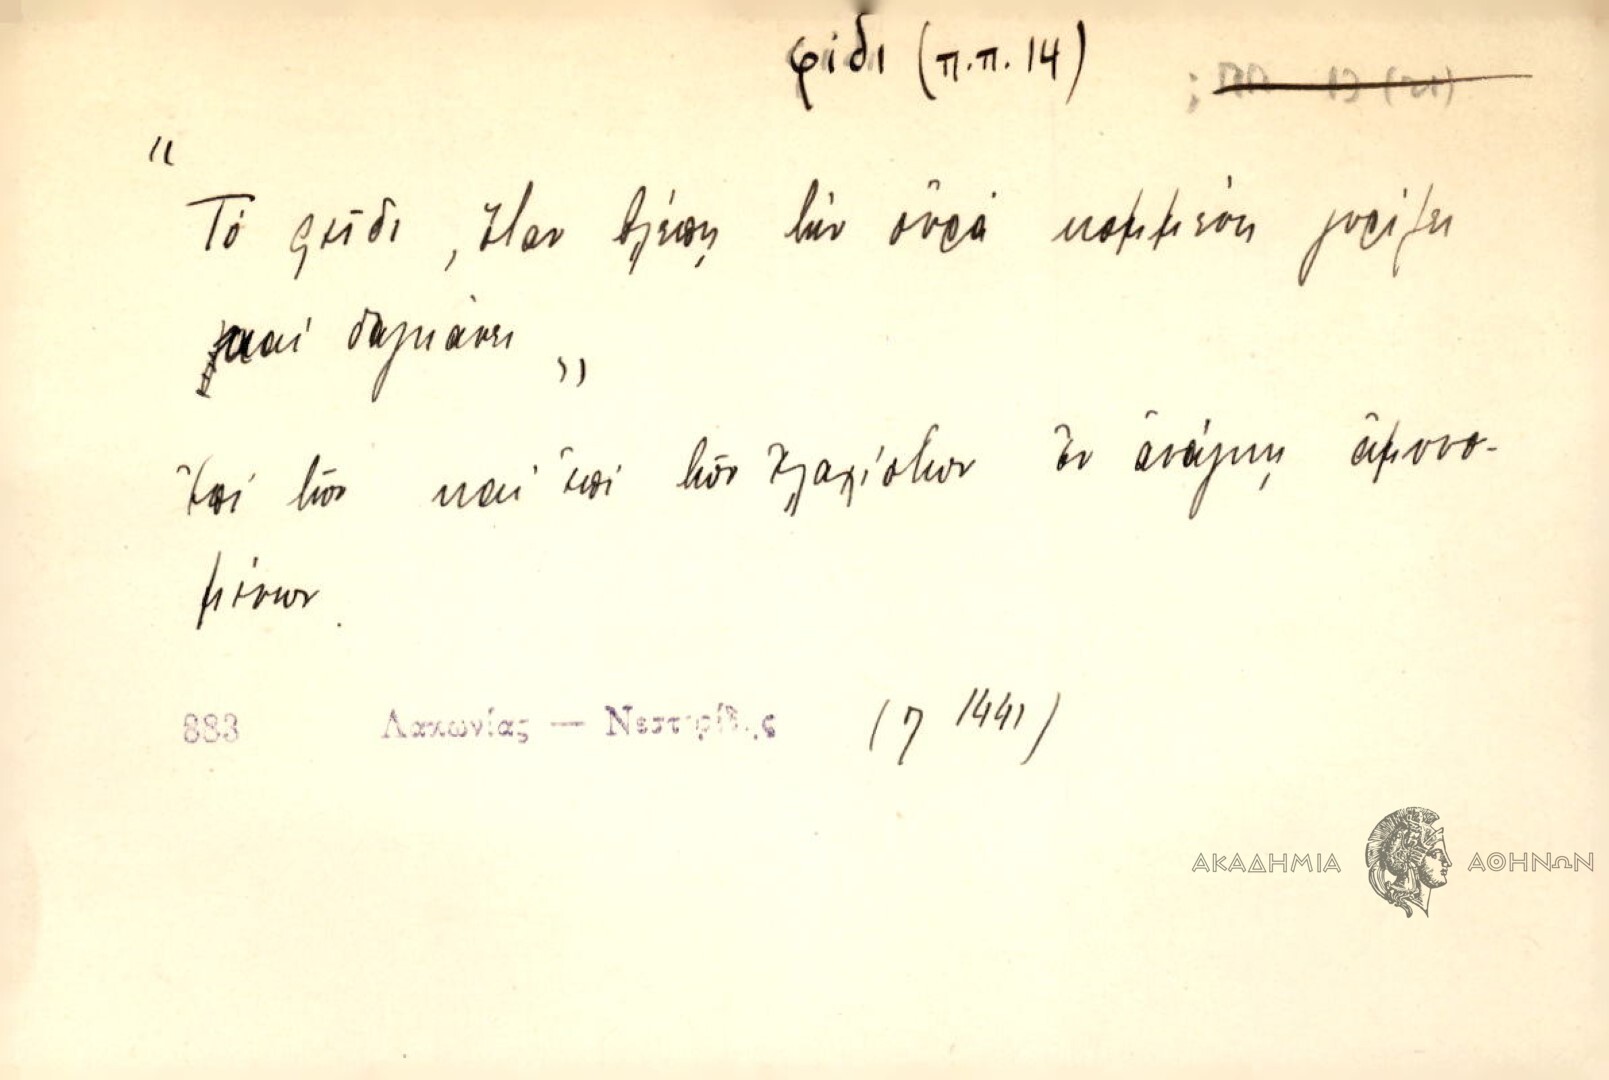 φίδι (π.π. 14)
"Τό φεῖδι, ὅταν βλέπῃ τὴν οὐρὰ κομμένη γυρίζει
καί δαγκάνει"
Ἐπί τῶν καί ἐπί τῶν ἐλαχίστων ἐν ἀνάγκῃ ἀμυνο-
μένων.
883 Λακωνίας — Νεστορίδης (7 1441)
ΑΚΑΔΗΜΙΑ ΑΘΗΝΩΝ